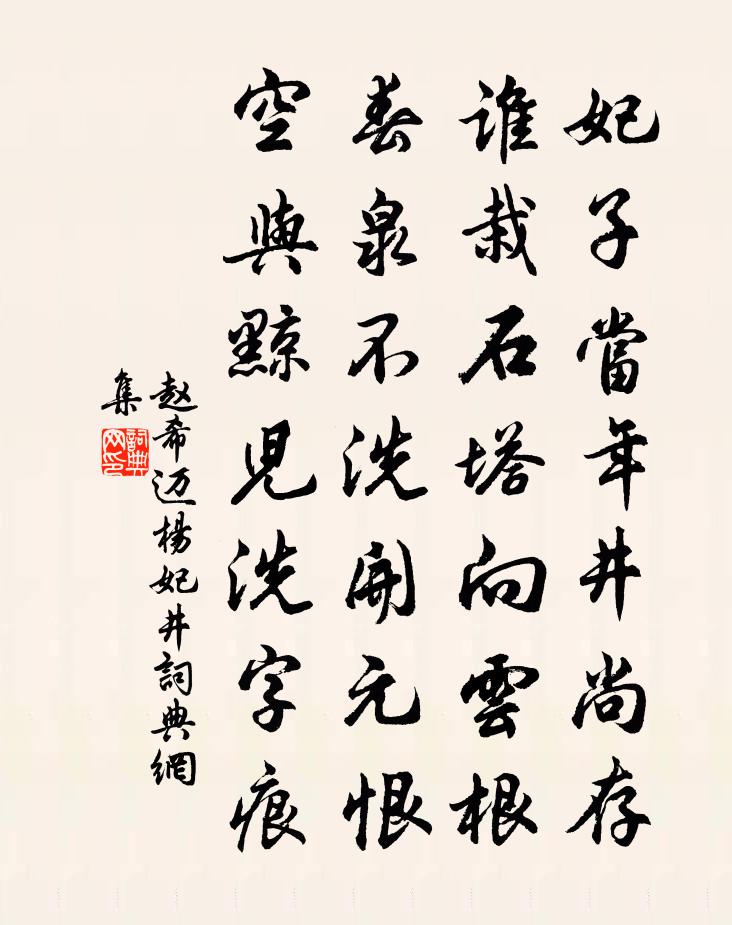 妃子當年井尚存
誰栽石塔向雲根
春泉不洗開元恨
空與黥兒洗字痕
赵希迈楊妃井詞典網
集
詞典
网印